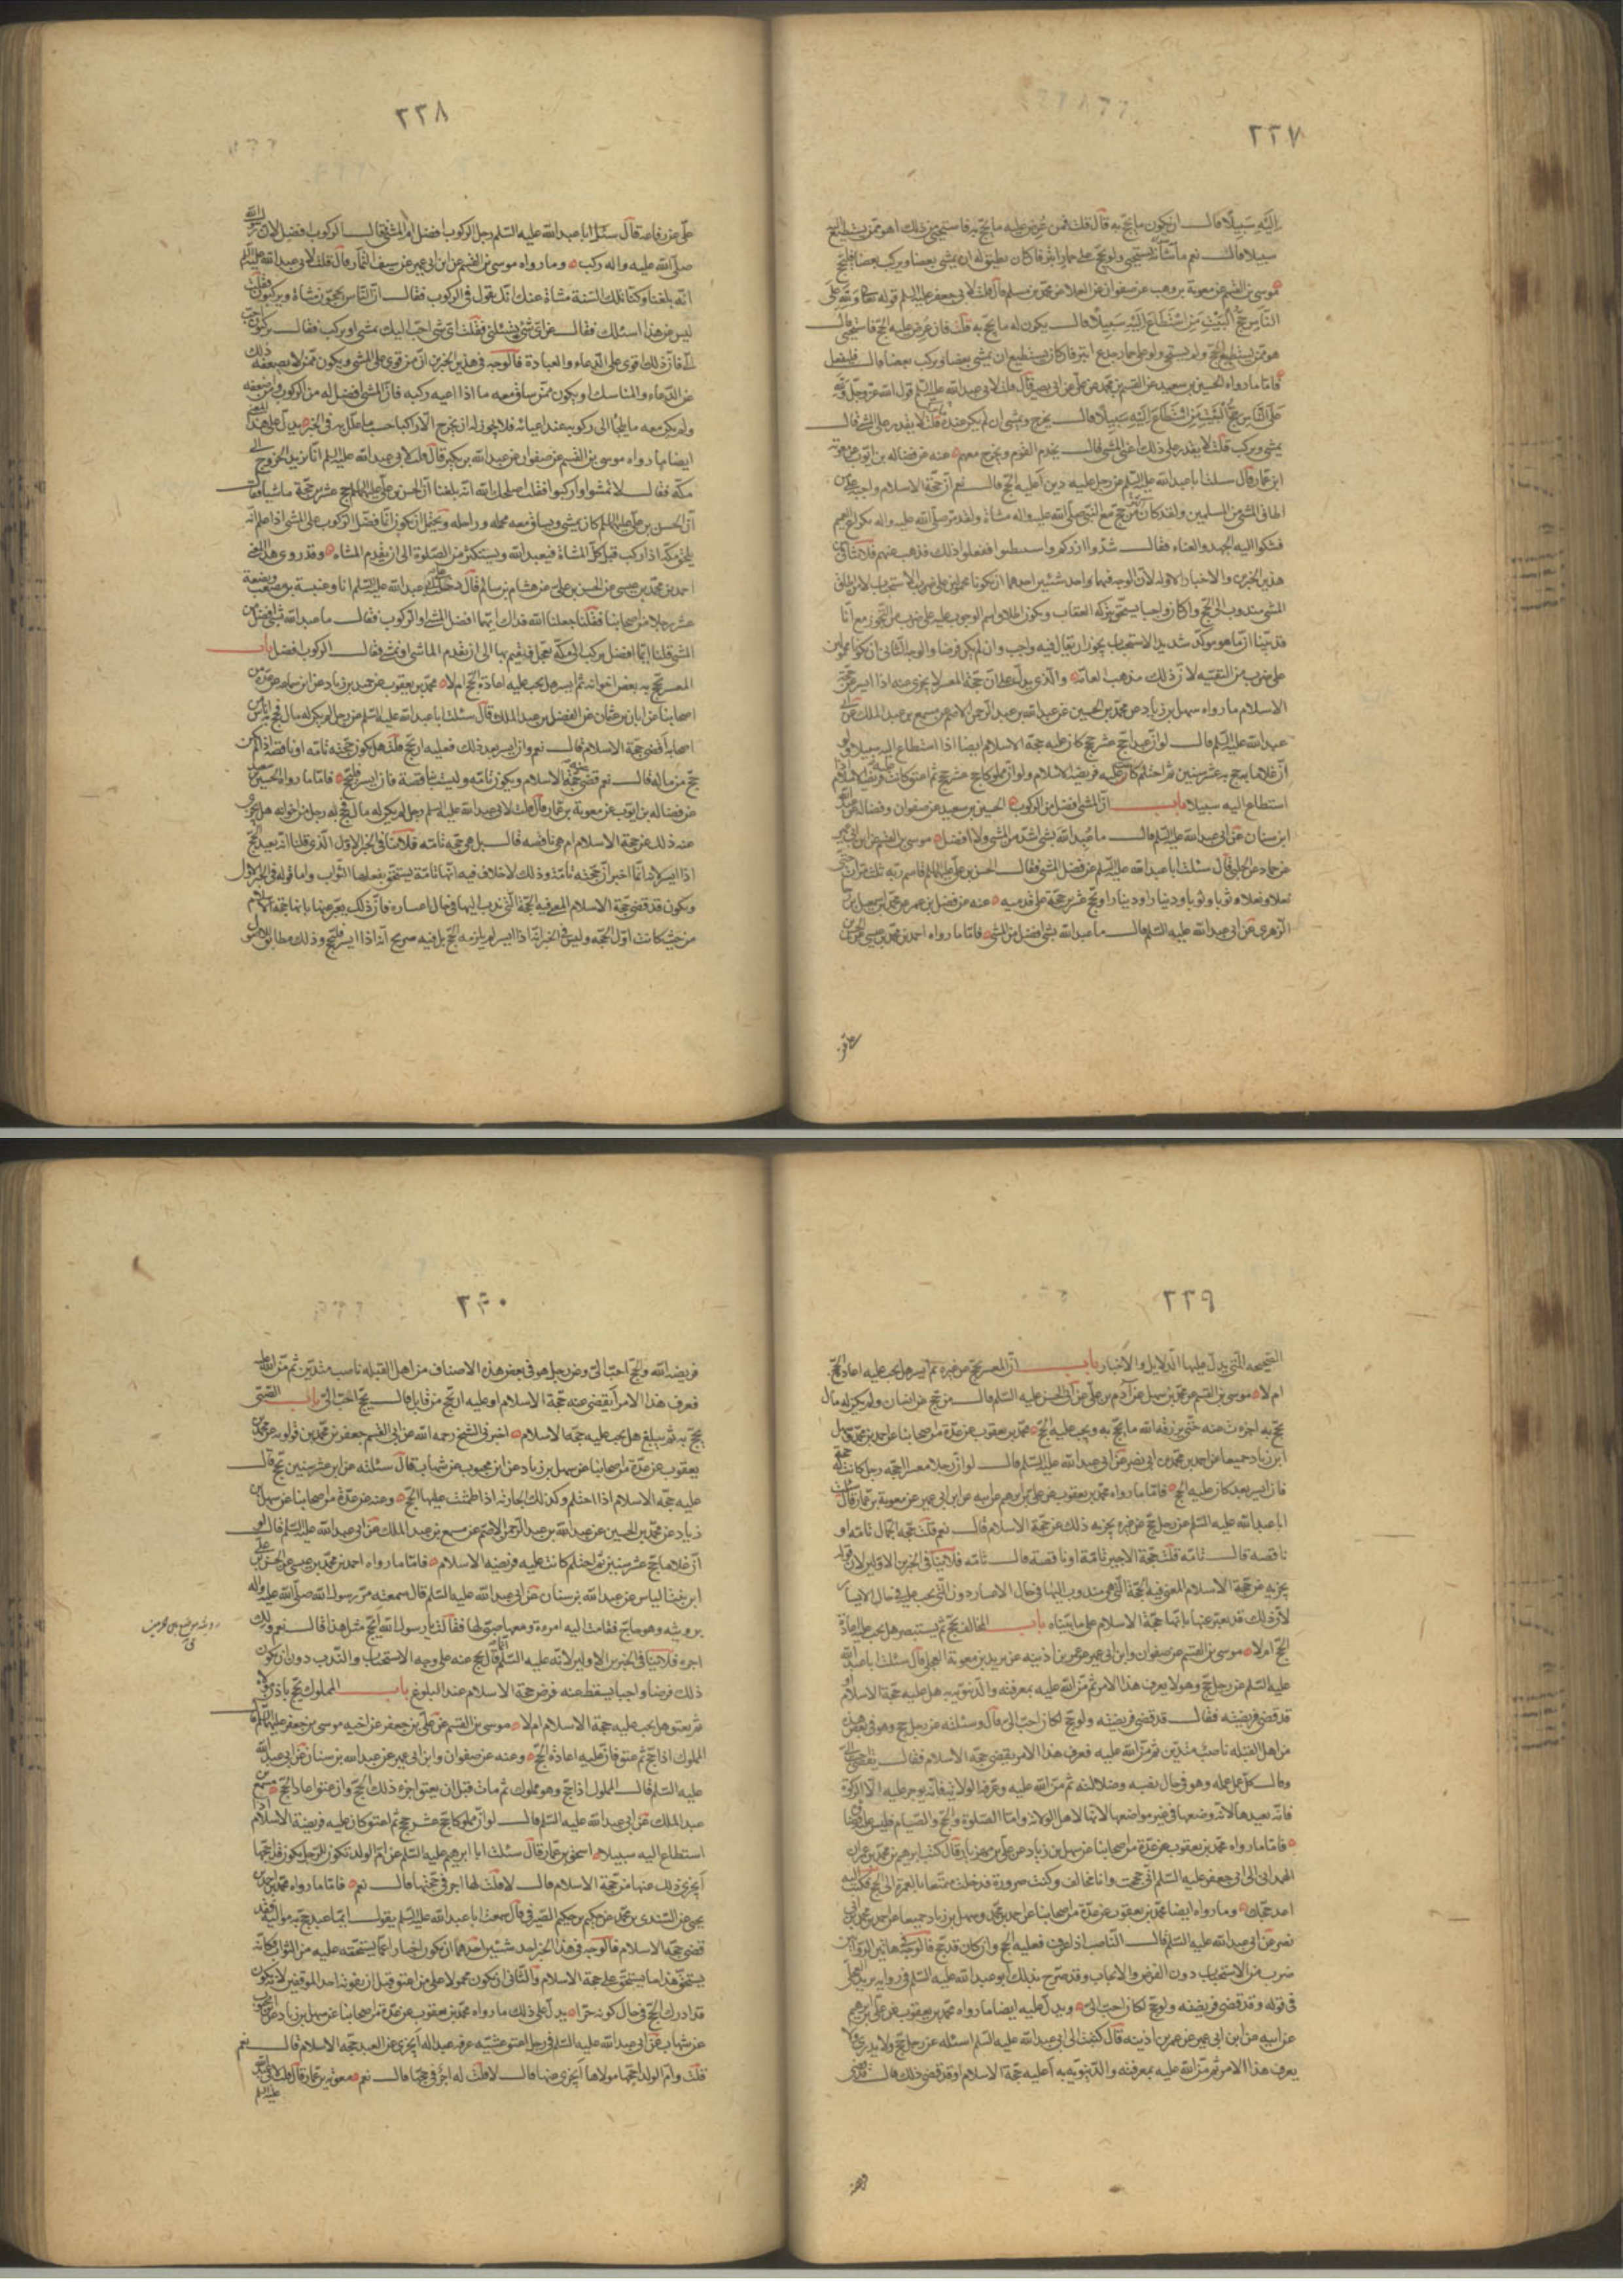 ٢٢٧
اِلَيْهِ سَبِيلًا قال ان يكون له ما يحج به قال قلت فمن عرض عليه ما يحج به فاستحيى من ذلك اهو ممن يستطيع اليه
سبيلا قال نعم ما شانه يستحيي ولو يحج على حمار ابتر فان كان يطيق ان يمشي بعضا ويركب بعضا فليحج
موسى بن القسم عن معوية بن وهب عن صفوان عن العلا عن محمد بن مسلم قال قلت لابي جعفر عليه السلم قوله تعالى ولله على
الناس حج البيت من استطاع اليه سبيلا قال يكون له ما يحج به قلت فان عرض عليه الحج فاستحيى قال
هو ممن يستطيع الحج ولم يستحي ولو على حمار اجدع ابتر فان كان يستطيع ان يمشي بعضا ويركب بعضا فليفعل
فاما ما رواه الحسين بن سعيد عن القسم بن محمد عن علي عن ابي بصير قال قلت لابي عبدالله عليه السلم قول الله عز وجل ولله
على الناس حج البيت من استطاع اليه سبيلا قال يخرج ويمشي ان لم يكن عنده قلت لا يقدر على المشي قال
يمشي ويركب قلت لا يقدر على ذلك اعني المشي قال يخدم القوم ويخرج معهم عنه عن فضاله بن ايوب عن معوية
ابن عمار قال سئلت ابا عبدالله عليه السلم عن رجل عليه دين أعليه ان يحج قال نعم ان حجة الاسلام واجبة على من
اطاق المشي من المسلمين ولقد كان من حج مع النبي صلى الله عليه واله مشاة ولقد مر صلى الله عليه واله بكراع الغميم
فشكوا اليه الجهد والعناء فقال شدوا ازركم واستبطنوا ففعلوا ذلك فذهب عنهم فلا تنافي بين
هذين الخبرين والاخبار الاوله لان الوجه فيهما واحد شيئين احدهما ان يكونا محمولين على ضرب الاستحباب لان من اطاق
المشي مندوب الى الحج وان كان واجبا يستحق بتركه العقاب ويكون اطلاق اسم الوجوب عليه على ضرب من التجوز مع انا
قد بينا ان ما هو موكد شديد الاستحباب يجوز ان يقال فيه واجب وان لم يكن فرضا والوجه الثاني ان يكونا محمولين
على ضرب من التقيه لان ذلك مذهب العامة والذي يدل على ان حجة المعسر لا يجزي عنه اذا ايسر عن حجة
الاسلام ما رواه سهل بن زياد عن محمد بن الحسين عن عبدالله بن عبد الرحمن الاصم عن مسمع بن عبد الملك عن ابي
عبدالله عليه السلم قال لو ان عبدا حج عشر حجج كان عليه حجة الاسلام ايضا اذا استطاع اليه سبيلا ولو
ان غلاما حج عشر سنين ثم احتلم كان عليه فريضة الاسلام ولو ان مملوكا حج عشر حجج ثم اعتق كانت عليه فريضة الاسلام اذا
استطاع اليه سبيلا باب ان المشي افضل من الركوب الحسين بن سعيد عن صفوان وفضاله عن عبدالله
ابن سنان عن ابي عبدالله عليه السلم قال ما عُبد الله بشي اشد من المشي ولا افضل موسى بن القسم عن ابن ابي عمير
عن حماد عن الحلبي قال سئلت ابا عبدالله عليه السلم عن فضل المشي فقال الحسن بن علي عليهما السلم قاسم ربه ثلث مرات حتى
نعلا ونعلا وثوبا وثوبا ودينارا ودينارا وحج عشرين حجة على قدميه عنه عن فضل بن عمرو عن محمد بن اسمعيل بن رجا
الزهري عن ابي عبدالله عليه السلم قال ما عبد الله بشي افضل من المشي فاما ما رواه احمد بن محمد بن عيسى عن الحسن بن
علي عن
٢٢٨
علي عن رفاعه قال سئل ابا عبدالله عليه السلم رجل الركوب افضل ام المشي فقال الركوب افضل لان رسول الله
صلى الله عليه واله ركب وما رواه موسى بن القسم عن ابن ابي عمير عن سيف التمار قال قلت لابي عبدالله عليه السلم
انه بلغنا وكنا تلك السنة مشاة عنك انك تقول في الركوب فقال ان الناس يحجون مشاة ويركبون فقلت
ليس عن هذا اسئلك فقال عن اي شي تسئلني فقلت اي شي احب اليك نمشي او نركب فقال تركبون احب
الي فان ذلك اقوى على الدعاء والعبادة فالوجه في هذين الخبرين ان من قوي على المشي ويكون ممن لا يضعفه ذلك
عن الدعاء والمناسك او يكون ممن ساق معه ما اذا اعيى ركبه فان المشي افضل له من الركوب ومن اضعفه
ولم يكن معه ما يلجأ الى ركوبه عند اعيائه فلا يجوز له ان يخرج الا راكبا حسب ما علل به في الخبر يدل على هذا المعنى
ايضا ما رواه موسى بن القسم عن صفوان عن عبدالله بن بكير قال قلت لابي عبدالله عليه السلم انا نريد الخروج الى
مكة فقال لا تمشوا واركبوا فقلت اصلحك الله انه بلغنا ان الحسن بن علي عليهما السلم حج عشرين حجة ماشيا فقال
ان الحسن بن علي عليهما السلم كان يمشي ويساق معه محمله ورحاله ويحتمل ان يكون انما فضل الركوب على المشي اذا علم انه
يلحق مكة اذا ركب قبل المشاة فيعبد الله ويستكثر من الصلوة الى ان يقدم المشاه وقد روى هذا المعنى
احمد بن محمد بن عيسى عن الحسن بن علي عن هشام بن سالم قال دخلنا على ابي عبدالله عليه السلم انا وعنبسة بن مصعب وبضعة
عشر رجلا من اصحابنا فقلنا جعلنا الله فداك ايهما افضل المشي او الركوب فقال ما عبد الله بشي افضل من
المشي قلنا ايما افضل نركب الى مكة نعجل فنقيم بها الى ان يقدم الماشي او نمشي فقال الركوب افضل باب
المعسر يحج به بعض اخوانه ثم ايسر هل يجب عليه اعادة الحج ام لا محمد بن يعقوب عن حميد بن زياد عن ابن سماعه عن عدة من
اصحابنا عن ابان بن عثمان عن الفضل بن عبد الملك قال سئلت ابا عبدالله عليه السلم عن رجل لم يكن له مال فحج به اناس من
اصحابه أقضى حجة الاسلام قال نعم وان ايسر بعد ذلك فعليه ان يحج قلت هل تكون حجته تامة او ناقصة اذا لم يكن
حج من ماله قال نعم قضى عنه حجة الاسلام وتكون تامة وليست بناقصة فان ايسر فليحج فاما ما رواه الحسين بن سعيد
عن فضاله بن ايوب عن معوية بن عمار قال قلت لابي عبدالله عليه السلم رجل لم يكن له مال فحج به رجل من اخوانه هل يجزي
عنه ذلك عن حجة الاسلام ام هي ناقصة قال بل هي حجة تامة فلا ينافي الخبر الاول الذي قلنا انه يعيد الحج
اذا ايسر لانه انما اخبر ان حجته تامة وذلك لا خلاف فيه انها تامة يستحق بفعلها الثواب واما قوله في الخبر الاول
ويكون قد قضى حجة الاسلام المعني فيه الحجة التي ندب اليها في حال اعساره فان ذلك يعبر عنها بانها حجة الاسلام
من حيث كانت اول الحجة وليس في الخبر انه اذا ايسر لم يلزمه الحج بل فيه صريح انه اذا ايسر فليحج وذلك مطابق للاصول
٢٢٩
الصحيحه التي يدل عليها الدلايل والاخبار باب ان المعسر يحج عن غيره ثم ايسر هل يجب عليه اعادة الحج
ام لا موسى بن القسم عن محمد بن سهل عن آدم بن علي عن ابي الحسن عليه السلم قال من حج عن انسان ولم يكن له مال
يحج به اجزءت عنه حتى يرزقه الله ما يحج به ويجب عليه الحج محمد بن يعقوب عن عدة من اصحابنا عن احمد بن محمد وسهل
ابن زياد جميعا عن احمد بن محمد بن ابي نصر عن ابي عبدالله عليه السلم قال لو ان رجلا معسرا احجه رجل كانت له حجة
فان ايسر بعد كان عليه الحج فاما ما رواه محمد بن يعقوب عن علي بن ابرهيم عن ابيه عن ابن ابي عمير عن معوية بن عمار قال سئلت
ابا عبدالله عليه السلم عن رجل حج عن غيره يجزيه ذلك عن حجة الاسلام قال نعم قلت حجة الجمال تامة او
ناقصه قال تامه قلت حجة الاجير تامة او ناقصة قال تامه فلا ينافي الخبرين الاولين لان قوله
يجزيه عن حجة الاسلام المعني فيه الحجة التي هي مندوب اليها في حال الاعسار دون التي يجب عليه في حال الايسار
لان ذلك قد يعبر عنها بانها حجة الاسلام على ما بيناه باب المخالف يحج ثم يستبصر هل يجب عليه اعادة
الحج ام لا موسى بن القسم عن صفوان وابن ابي عمير عن عمر بن اذينه عن بريد بن معوية العجلي قال سئلت ابا عبدالله
عليه السلم عن رجل حج وهو لا يعرف هذا الامر ثم من الله عليه بمعرفته والدينونة به هل عليه حجة الاسلام او
قد قضى فريضته فقال قد قضى فريضته ولو حج لكان احب الي قال وسئلته عن رجل حج وهو في بعض هذه
من اهل القبله ناصب متدين ثم من الله عليه فعرف هذا الامر يقضي حجة الاسلام فقال يقضي احب الي
وقال كل عمل عمله وهو في حال نصبه وضلالته ثم من الله عليه وعرفه الولاية فانه يوجر عليه الا الزكوة
فانه يعيدها لانه وضعها في غير مواضعها لانها لاهل الولاية واما الصلوة والحج والصيام فليس عليه قضا
فاما ما رواه محمد بن يعقوب عن عدة من اصحابنا عن سهل بن زياد عن علي بن مهزيار قال كتب ابرهيم بن محمد بن عمران
الهمداني الى ابي جعفر عليه السلم اني حججت وانا مخالف وكنت صرورة فدخلت متمتعا بالعمرة الى الحج فكتب اليه
اعد حجك وما رواه ايضا محمد بن يعقوب عن عدة من اصحابنا عن احمد بن محمد وسهل بن زياد جميعا عن احمد بن محمد بن ابي
نصر عن ابي عبدالله عليه السلم قال الناصب اذا عرف فعليه الحج وان كان قد حج فالوجه في هاتين الروايتين
ضرب من الاستحباب دون الفرض والايجاب وقد صرح بذلك ابو عبدالله عليه السلم في رواية بريد العجلي
في قوله وقد قضى فريضته ولو حج لكان احب الي ويدل عليه ايضا ما رواه محمد بن يعقوب عن علي بن ابرهيم
عن ابيه عن ابن ابي عمير عن عمر بن اذينه قال كتبت الى ابي عبدالله عليه السلم اسئله عن رجل حج ولا يدري ولا
يعرف هذا الامر ثم من الله عليه بمعرفته والدينونة به أعليه حجة الاسلام او قد قضى ذلك قال قد قضى
٢٣٠
فريضه الله والحج احب الي وعن رجل هو في بعض هذه الاصناف من اهل القبله ناصب متدين ثم من الله عليه
فعرف هذا الامر أيقضى عنه حجة الاسلام او عليه ان يحج من قابل قال يحج احب الي باب الصبي
يحج به ثم يبلغ هل يجب عليه حجة الاسلام اخبرني الشيخ رحمه الله عن ابي القسم جعفر بن محمد بن قولويه عن محمد بن
يعقوب عن عدة من اصحابنا عن سهل بن زياد عن ابن محبوب عن شهاب قال سئلته عن ابن عشر سنين يحج قال
عليه حجة الاسلام اذا احتلم وكذلك الجارية اذا طمثت عليها الحج وعنه عن عدة من اصحابنا عن سهل بن
زياد عن محمد بن الحسين عن عبدالله بن عبد الرحمن الاصم عن مسمع بن عبد الملك عن ابي عبدالله عليه السلم قال لو
ان غلاما حج عشر سنين ثم احتلم كانت عليه فريضة الاسلام فاما ما رواه احمد بن محمد بن عيسى عن الحسن بن علي
ابن بنت الياس عن عبدالله بن سنان عن ابي عبدالله عليه السلم قال سمعته يقول مر رسول الله صلى الله عليه واله
برويثه وهو حاج فقامت اليه امرءة ومعها صبي لها فقالت يا رسول الله أيحج مثل هذا قال نعم ولك
اجره فلا ينافي الخبرين الاولين لانه عليه السلم انما قال يحج عنه على وجه الاستحباب والندب دون ان يكون
ذلك فرضا واجبا يسقط عنه فرض حجة الاسلام عند البلوغ باب المملوك يحج باذن مولاه
ثم يعتق هل يجب عليه حجة الاسلام ام لا موسى بن القسم عن علي بن جعفر عن اخيه موسى بن جعفر عليهما السلم قال
المملوك اذا حج ثم عتق فان عليه اعادة الحج وعنه عن صفوان وابن ابي عمير عن عبدالله بن سنان عن ابي عبدالله
عليه السلم قال المملوك اذا حج وهو مملوك ثم مات قبل ان يعتق اجزءه ذلك الحج وان عتق اعاد الحج مسمع بن
عبد الملك عن ابي عبدالله عليه السلم قال لو ان مملوكا حج عشر حجج ثم اعتق كان عليه فريضة الاسلام اذا
استطاع اليه سبيلا اسحق بن عمار قال سئلت ابا ابرهيم عليه السلم عن ام الولد تكون للرجل يكون قد احجها
أيجزي ذلك عنها من حجة الاسلام قال لا قلت لها اجر في حجتها قال نعم فاما ما رواه محمد بن احمد بن
يحيى عن السندي بن محمد عن حكم بن حكيم الصيرفي قال سمعت ابا عبدالله عليه السلم يقول ايما عبد حج به مواليه فقد
قضى حجة الاسلام فالوجه في هذا الخبر احد شيئين احدهما ان يكون اخبارا عما يستحقه عليه من الثواب فكانه
يستحق هذا ما يستحق على حجة الاسلام والثاني ان يكون محمولا على من اعتق قبل ان يفوته احد الموقفين لانه يكون
قد ادرك الحج في حال كونه حرا يدل على ذلك ما رواه محمد بن يعقوب عن عدة من اصحابنا عن سهل بن زياد عن ابن محبوب
عن شهاب عن ابي عبدالله عليه السلم في رجل اعتق عشية عرفه عبدا له أيجزي عن العبد حجة الاسلام قال نعم
قلت وام الولد احجها مولاها أيجزي عنها قال لا قلت له اجر في حجتها قال نعم معوية بن عمار قال قلت لابي عبدالله
عليه السلم